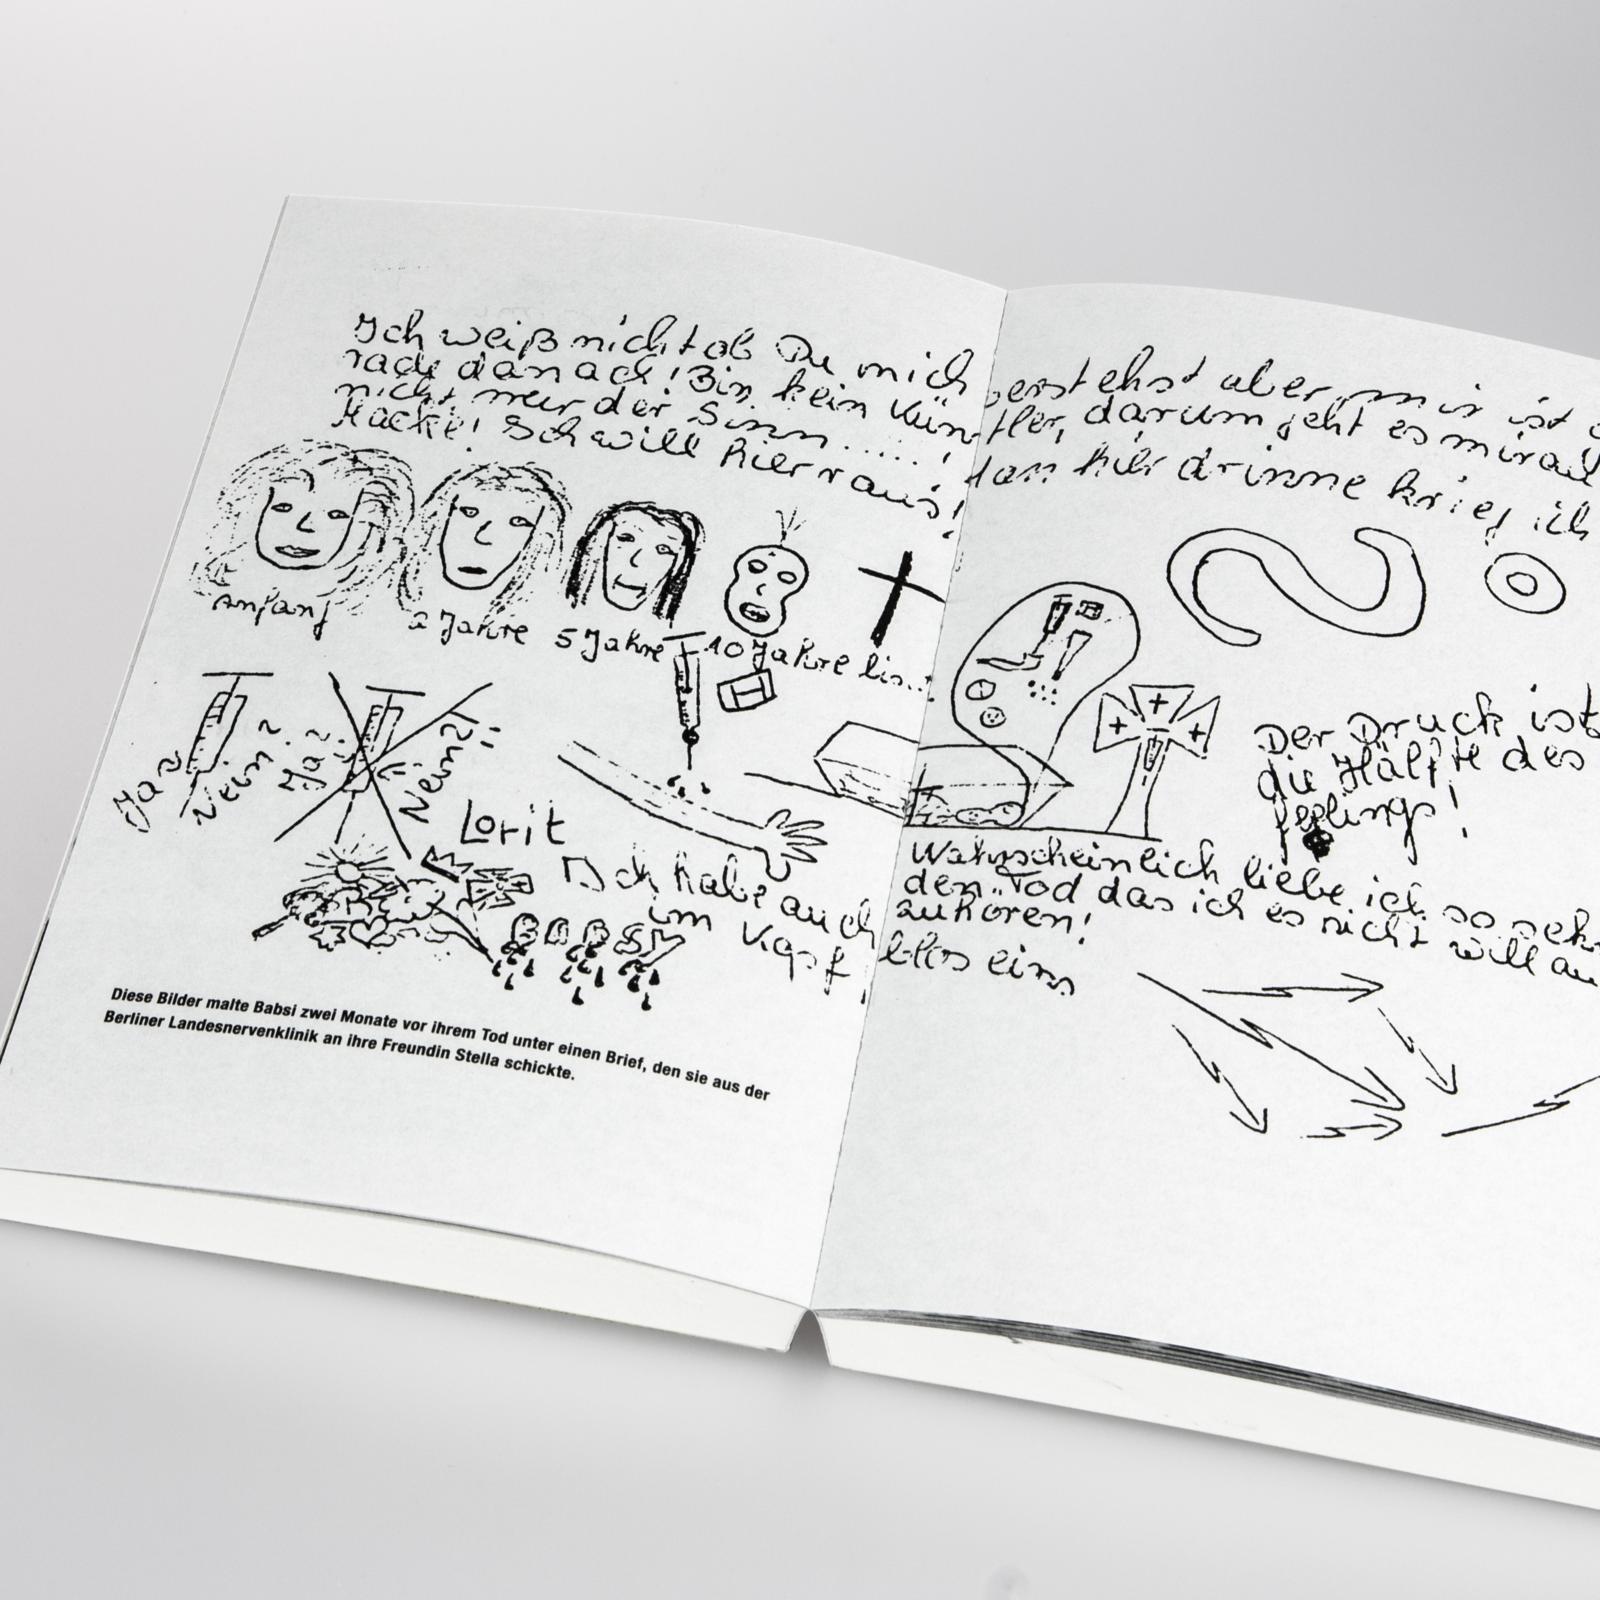 Ich weiß nicht ob Du mich verstehst aber mir ist
rade danach! Bin kein Künstler, darum geht es mir auch
nicht nur der Sinn.....!
Kacke! Ich will hier raus! hier drinne krieg ich
Anfang
2 Jahre
5 Jahre
10 Jahre
Ja?
Nein?
Ja?
Nein?!
Lorit
Ich habe auch
im Kopf,
Der Druck ist
die Hälfte des
feelings!
Wahrscheinlich liebe ich so sehr
den Tod das ich es nicht will
zuhören!
eins
Diese Bilder malte Babsi zwei Monate vor ihrem Tod unter einen Brief, den sie aus der
Berliner Landesnervenklinik an ihre Freundin Stella schickte.